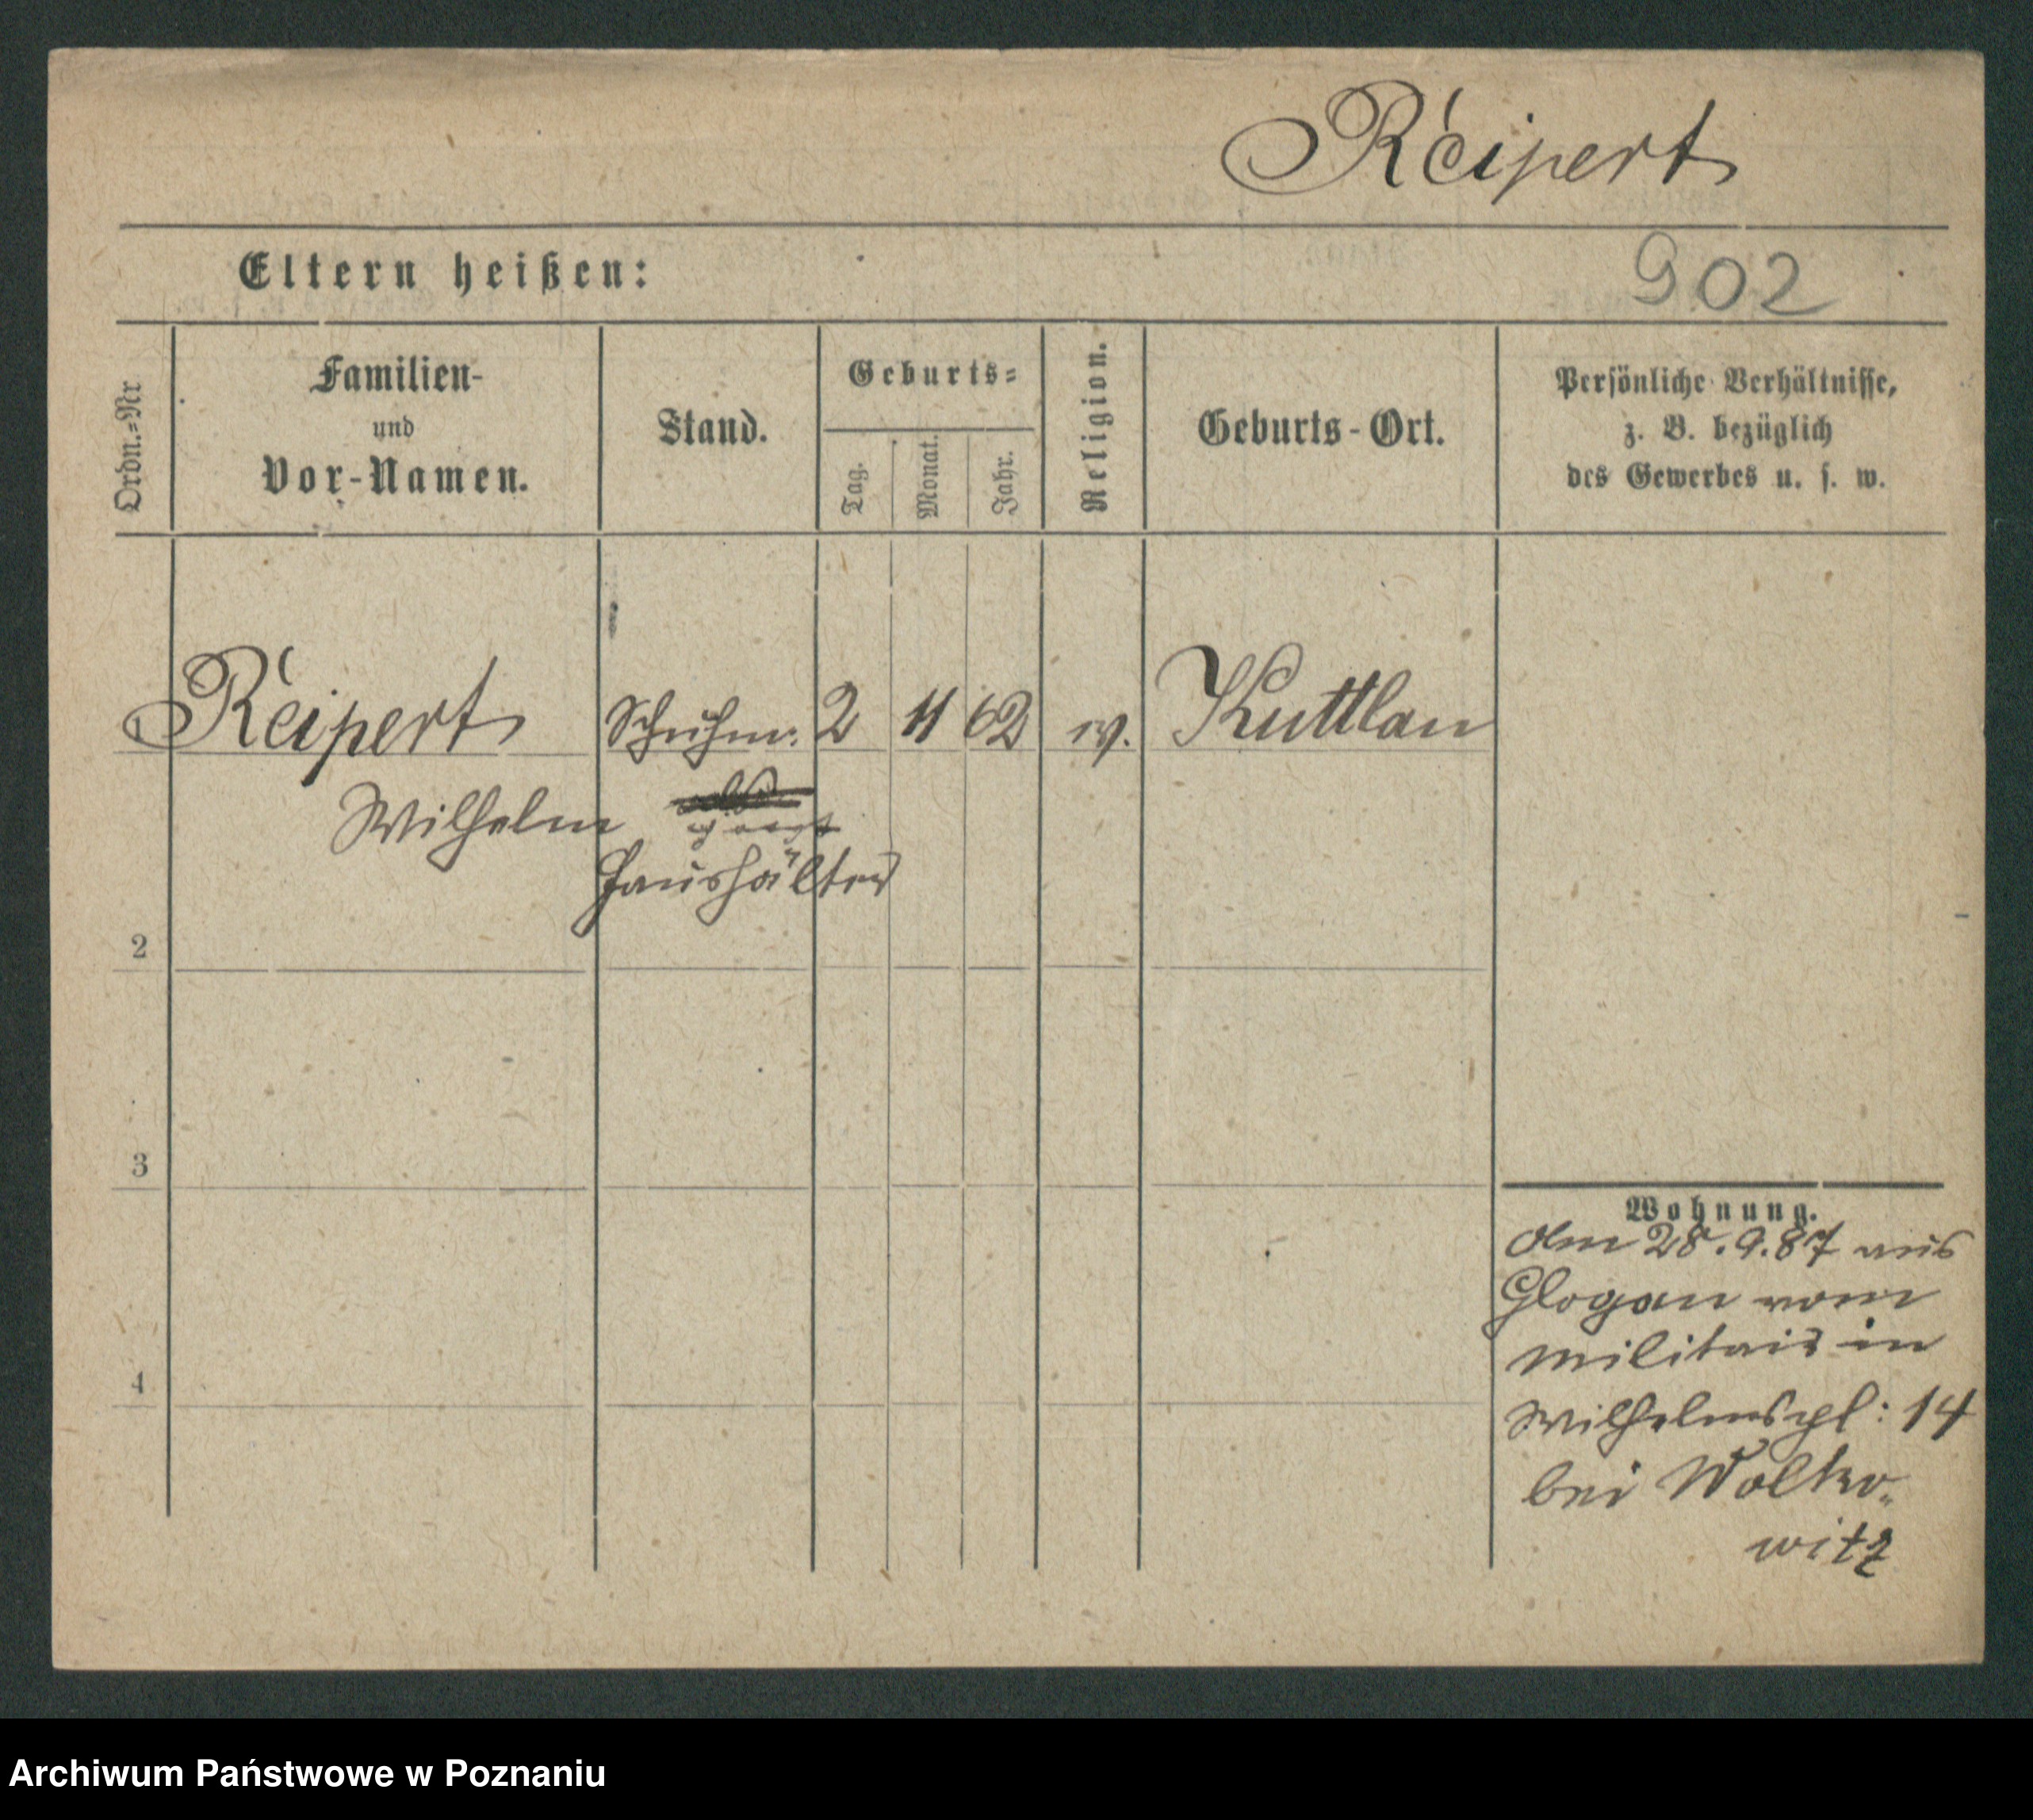 Reipert
Eltern heißen:
902
Ordn.-Nr
Familien-
und
Vor-Namen.
Stand.
Geburts-
Tag.
Monat.
Jahr.
Religion.
Geburts-Ort.
Persönliche Verhältnisse,
z. B. bezüglich
des Gewerbes u. s. w.
Reipert Schuhm. 2 11 62 ev. Kuttlau
Wilhelm
Haushälter
2
3
4
Wohnung.
Am 28.9.87 aus
Glogau vom
Militair in
Wilhelmspl: 14
bei Wolko-
witz
Archiwum Państwowe w Poznaniu